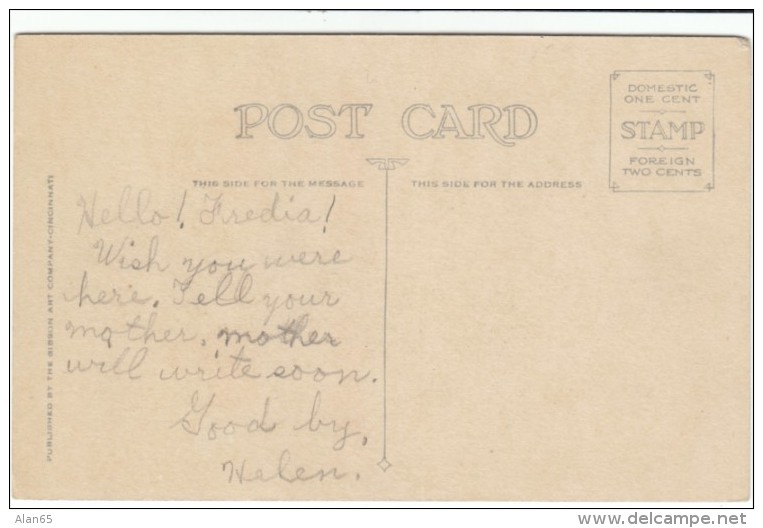 POST CARD
DOMESTIC
ONE CENT
STAMP
FOREIGN
TWO CENTS
THIS SIDE FOR THE MESSAGE
THIS SIDE FOR THE ADDRESS
PUBLISHED BY THE GIBSON ART COMPANY-CINCINNATI
Hello! Fredia!
Wish you were
here. Tell your
mother, mother
will write soon.
Good by,
Helen.
Alan65
www.delcampe.net